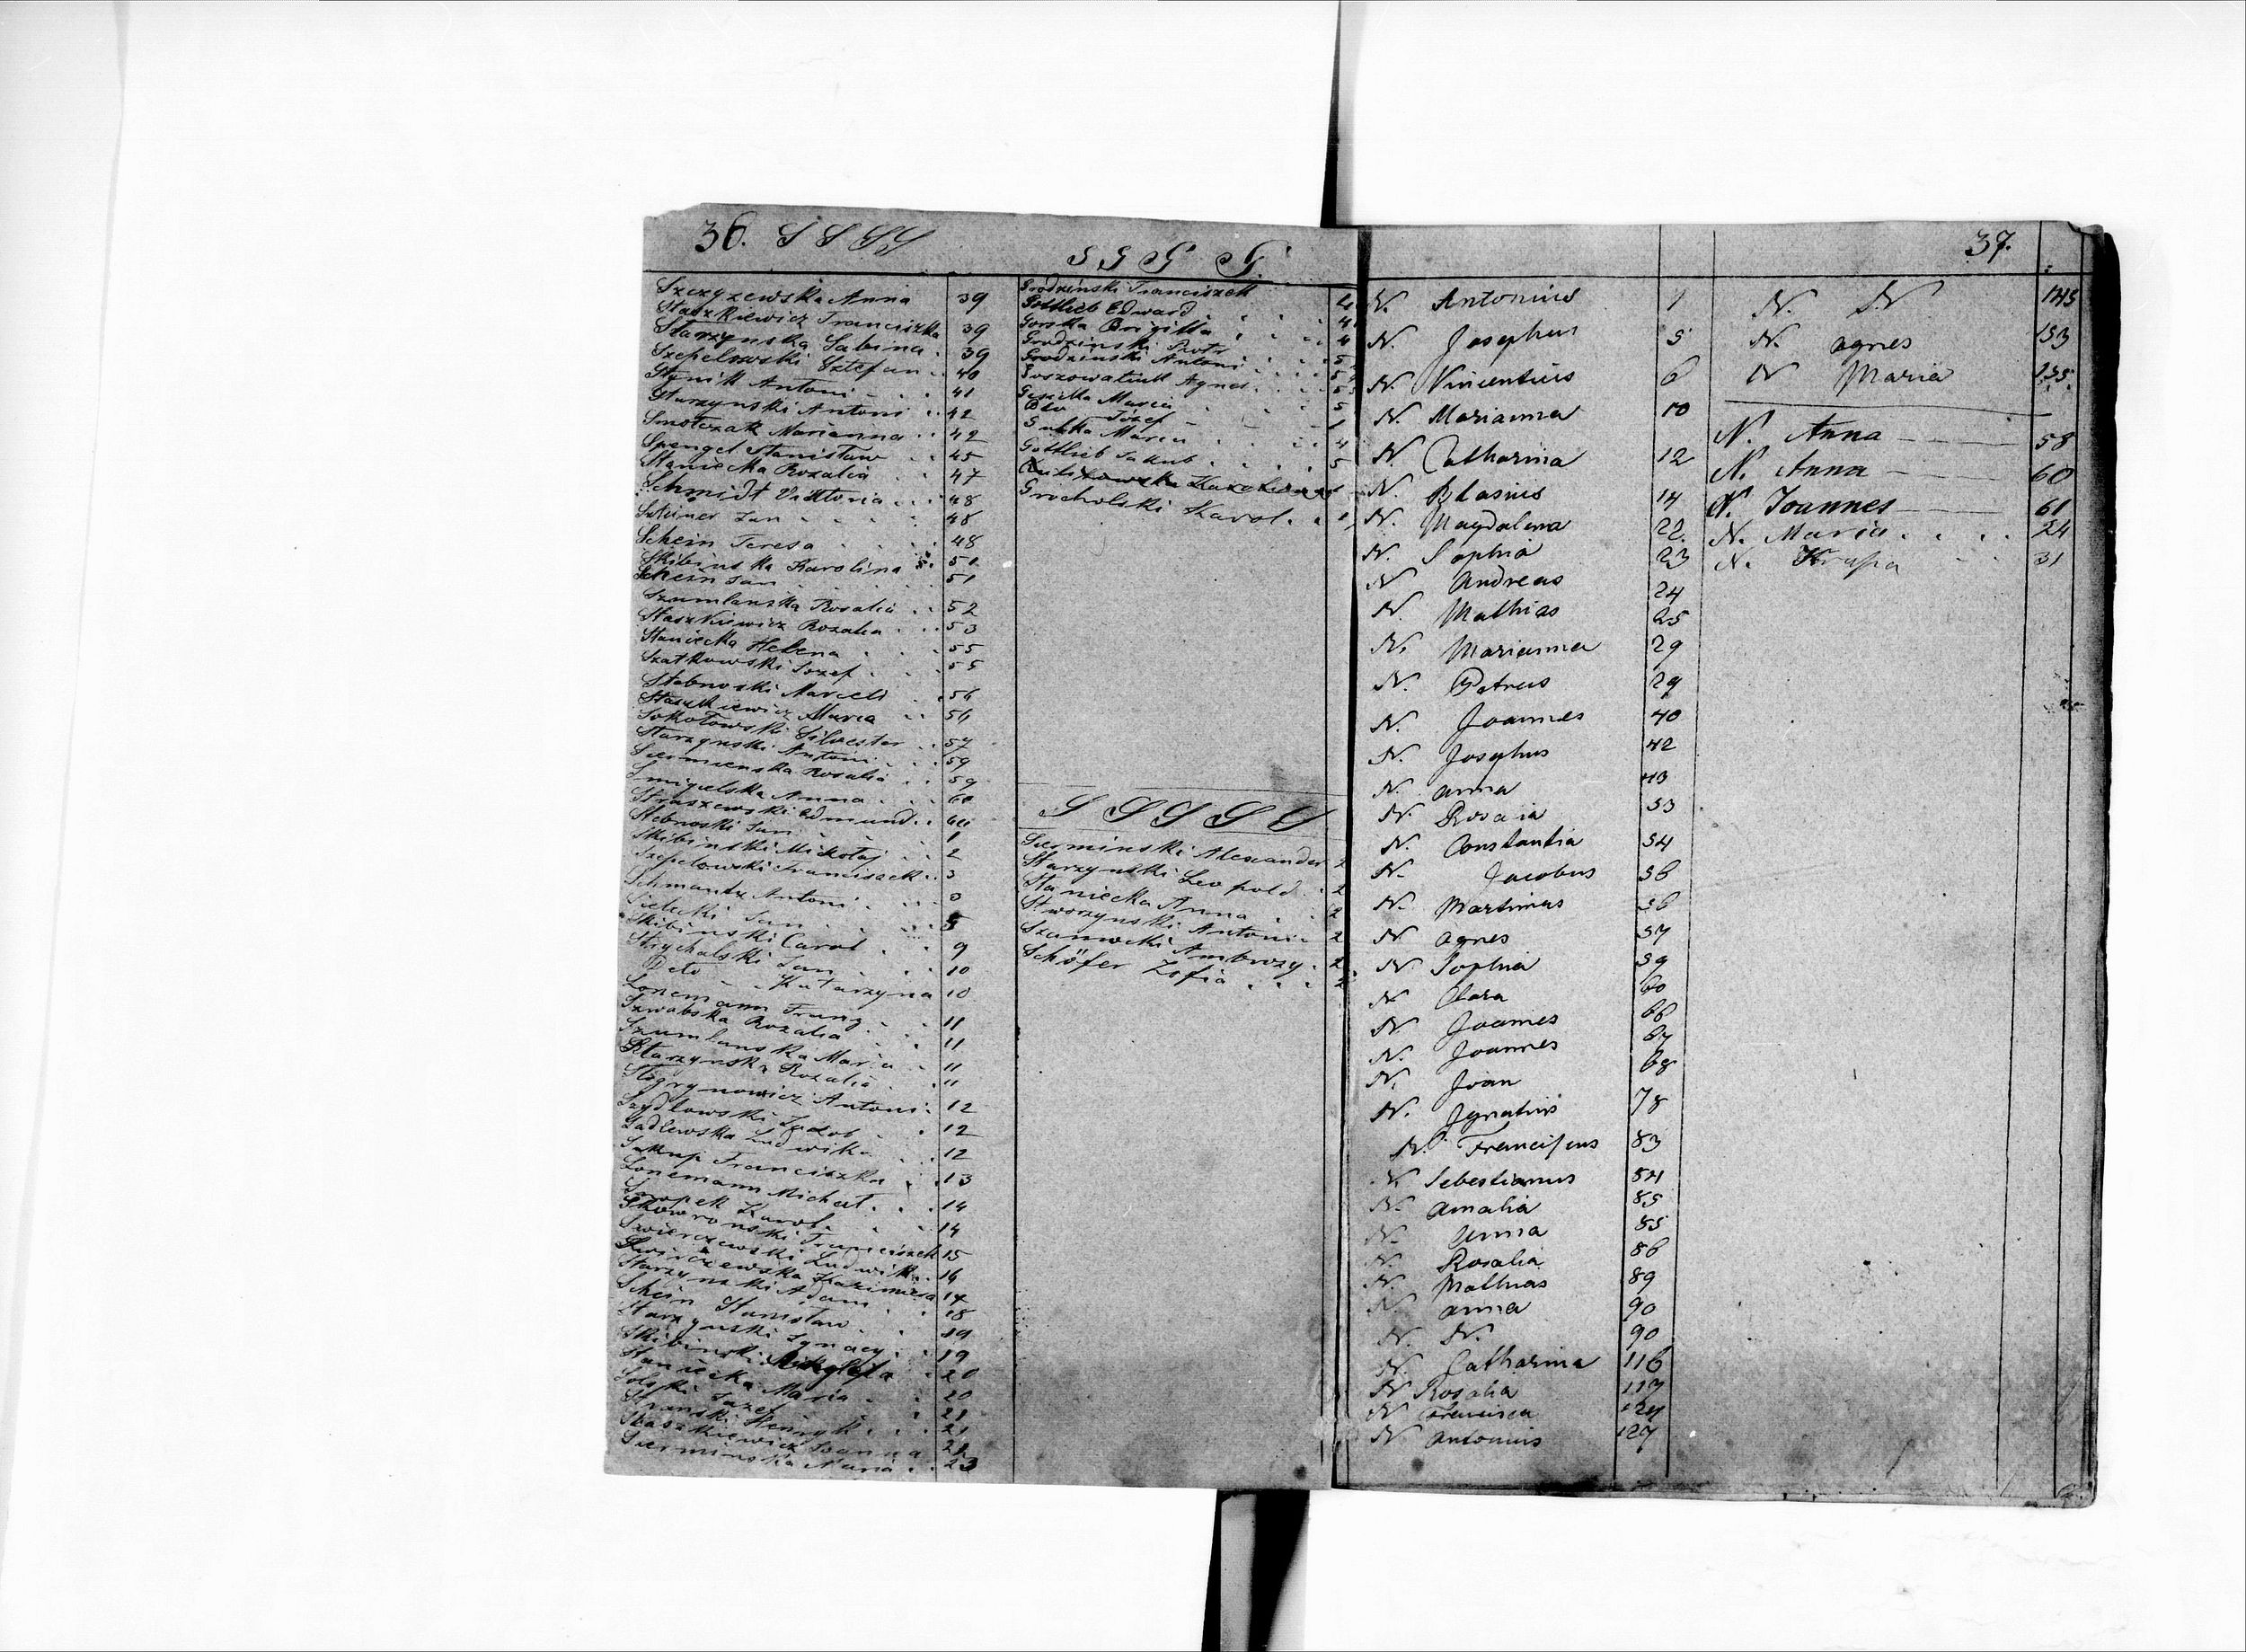 36. S S S S
Szczyzewska Anna 39
Staszkiewicz Franciszka 39
Starzynska Sabina 39
Szepelowski Sztefan 40
Stynik Antoni 41
Starzynski Antoni 42
Smotczak Marianna 42
Spengel Stanisław 45
Staniecka Rozalia 47
Schmidt Viktoria 48
Jan 48
Schein Teresa 48
Skibinska Karolina 51
Schein Jan 51
Szumlanska Rosalia 52
Staszkiewicz Rozalia 53
Staniecka Helena 55
Szatkowski Jozef 55
Stebnoski Marceli 56
Staszkiewicz Maria 56
Sokołowski Silvester 57
Starzynski Antoni 59
Siermienska Rosalia 59
Smigielska Anna 60
Straszewski Edmund
Stebnoski Jan 1
Skibinski Mikołaj 2
Szepelowski Franciszek 3
Schmantz Antoni 3
Sielecki Jan 5
Skibinski Carol 9
Strychalski Jan 10
Deto Katarzyna 10
Lonemann Franz 11
Szwabska Rozalia 11
Szumlanska Maria 11
Starzynska Rozalia 11
Antoni 12
Szydlowski Jacob 12
Sadlewska Ludwika 12
Franciszka 13
Lonemann Michał 14
Karol 14
Skowronski Franciszek 15
Swierczewski Ludwik 16
Swirczewska Kazimiera 17
Starzynski Adam 18
Schein Stanisław 19
Starzynski Ignacy 19
Skibinski 20
Staniecka Maria 20
Solski Jozef 21
Stranski Henryk 21
Staszkiewicz Joanna 21
Siermińska Maria 23
G G G G.
Grodzinski Franciszek 4
Gottlieb Edward 4
Gorska Brigitta 4
Grodzinski Piotr 5
Grodzinski Antoni 5
Goszowatiuk Agnes 5
Maria 5
Józef 1
Maria 4
Gottlieb Jakub 5
Grocholski Karol
S S S S S
Sierminski Alexander 2
Starzynski Leopold 2
Staniecka Anna 2
Stworzynski Antoni 2
Szanwcki Ambrozy 2
Schöfer Zofia 2
37.
N. Antonius 1
N. Josephus 5
N. Vincentius 6
N. Marianna 10
N. Catharina 12
N. Blasius 14
N. Magdalena 22.
N. Sophia 23
N Andreas 24
N. Mathias 25
N. Marianna 29
N. Petrus 29
N. Joannes 40
N. Josephus 42
N. Anna 43
N. Rosalia 53
N. Constantia 54
N. Jacobus 56
N. Martinus 56
N. Agnes 57
N. Sophia 59
N. Clara 60
N. Joannes 66
N. Joannes 67
N. Joan 68
N. Ignatius 78
N. Franciscus 83
N. Sebestianus 84
N. Amalia 85
N. Anna 85
N. Rosalia 86
N. Mathias 89
N. Anna 90
N. N. 90
N. Catharina 116
N Rosalia 117
N Francisca 124
N Antonius 127
N. N. 145
N. Agnes 153
N Maria 155
N. Anna 58
N. Anna 60
N. Joannes 61
N. Maria 24
N. Krupa 31